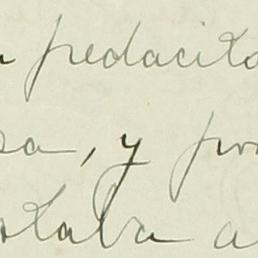 pedacito
sa, y pro
staba a